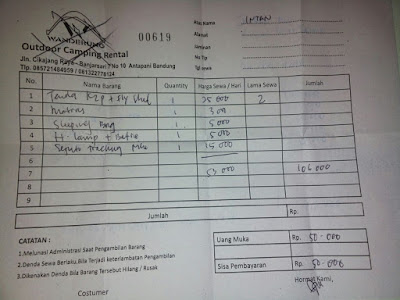 WANDERUNG
Outdoor Camping Rental
Jln. Cikajang Raya - Banjarsari 7 No 10 Antapani Bandung
Tlp. 085721484959 / 081322776124
00619
INTAN
Alamat
No Tlp
Tgl sewa
No. Nama Barang Quantity Harga Sewa / Hari Lama Sewa Jumlah
1 Tenda 1 25 000 2
2 Matras 1 3 000
3 Sleeping Bag 1 5000
4 H-lamp + 1 5000
5 Sepatu Tracking 1 15 000
6
7 53 000 106 000
8
9
Jumlah Rp.
CATATAN :
1.Melunasi Administrasi Saat Pengambilan Barang
2.Denda Sewa Berlaku,Bila Terjadi Keterlambatan Pengambilan
3.Dikenakan Denda Bila Barang Tersebut Hilang / Rusak
Uang Muka Rp. 50.000
Sisa Pembayaran Rp. 50.000
Costumer
Hormat Kami,